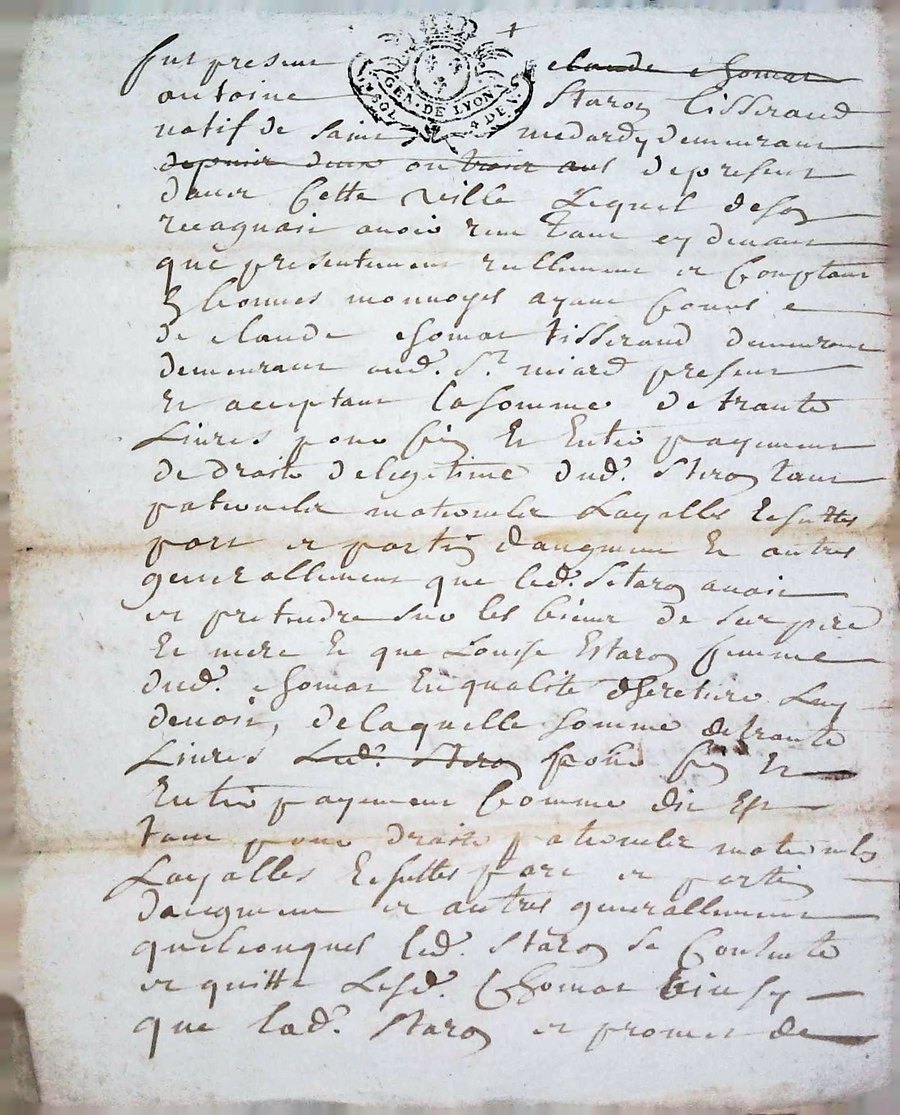 fut present claude Thomas
GEN. DE LYON
4 DEN
antoine Staron tisserand
natif de saint medard y demeurant
depuis deux ou trois ans de present
dans cette ville Lequel de son
recognoit avoir receu tant cy devant
que presentement reellement et comptant
bonnes monnoyes ayant cours
de claude Thomas tisserand demeurant
demeurant aud. St. miard present
Et acceptant la somme de trante
Livres pour fin Et Entier payement
de droits de legitime dud. Staron tant
paternels maternels Layalles Escuttes
part et portion d'augment Et autres
generallement que led. Staron avoit
et pretendre sur les biens de ses pere
Et mere Et que Louise Estaron femme
dud. Thomas En qualité d'heretiere Luy
devoit, de laquelle somme de trante
Livres Led. Staron pour fin Et
Entier payement Comme dit Est
tant pour droits paternels maternels
Layalles Escuttes part et portion
daugment et autres generallement
quelconques led. Staron se Contente
et quitte Lesd. Thomas bien sy
que lad. Staron et promet de